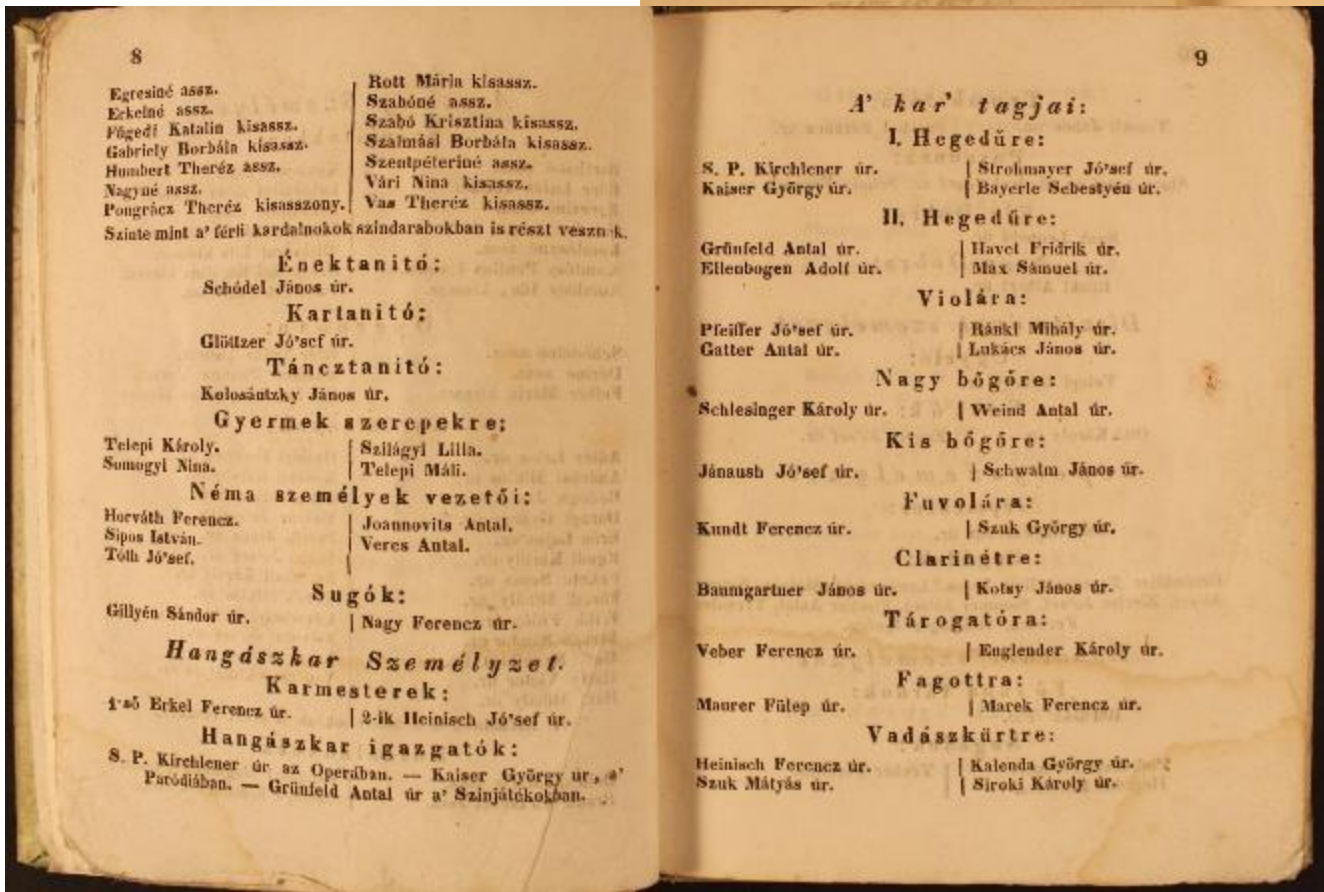 8
Egresiné assz.
Erkelné assz.
Fügedi Katalin kisassz.
Gabriely Borbála kisassz.
Humbert Theréz assz.
Nagyné assz.
Pongrácz Theréz kisasszony.
Rott Mária kisassz.
Szabóné assz.
Szabó Krisztina kisassz.
Szalmási Borbála kisassz.
Szentpéteriné assz.
Vári Nina kisassz.
Vas Theréz kisassz.
Szinte mint a' férfi kardalnokok szindarabokban is részt veszn k.
Énektanitó:
Schódel János úr.
Kartanitó:
Glöttzer Jó'sef úr.
Táncztanitó:
Kolosántzky János úr.
Gyermek szerepekre:
Telepi Károly.
Somogyi Nina.
Szilágyi Lilla.
Telepi Máli.
Néma személyek vezetői:
Horváth Ferencz.
Sipos István.
Tóth Jó'sef.
Joannovits Antal.
Veres Antal.
Sugók:
Gillyén Sándor úr.
Nagy Ferencz úr.
Hangászkar Személyzet.
Karmesterek:
1-ső Erkel Ferencz úr.
2-ik Heinisch Jó'sef úr.
Hangászkar igazgatók:
S. P. Kirchlener úr az Operában. — Kaiser György úr, a'
Paródiában. — Grünfeld Antal úr a' Szinjátékokban.
9
A' kar' tagjai:
I. Hegedűre:
S. P. Kirchlener úr.
Kaiser György úr.
Strohmayer Jó'sef úr.
Bayerle Sebestyén úr.
II. Hegedűre:
Grünfeld Antal úr.
Ellenbogen Adolf úr.
Havet Fridrik úr.
Max Sámuel úr.
Violára:
Pfeiffer Jó'sef úr.
Gatter Antal úr.
Ránkl Mihály úr.
Lukács János úr.
Nagy bőgőre:
Schlesinger Károly úr.
Weind Antal úr.
Kis bőgőre:
Jánaush Jó'sef úr.
Schwalm János úr.
Fuvolára:
Kundt Ferencz úr.
Szuk György úr.
Clarinétre:
Baumgartner János úr.
Kotsy János úr.
Tárogatóra:
Veber Ferencz úr.
Englender Károly úr.
Fagottra:
Maurer Fülep úr.
Marek Ferencz úr.
Vadászkürtre:
Heinisch Ferencz úr.
Szuk Mátyás úr.
Kalenda György úr.
Siroki Károly úr.